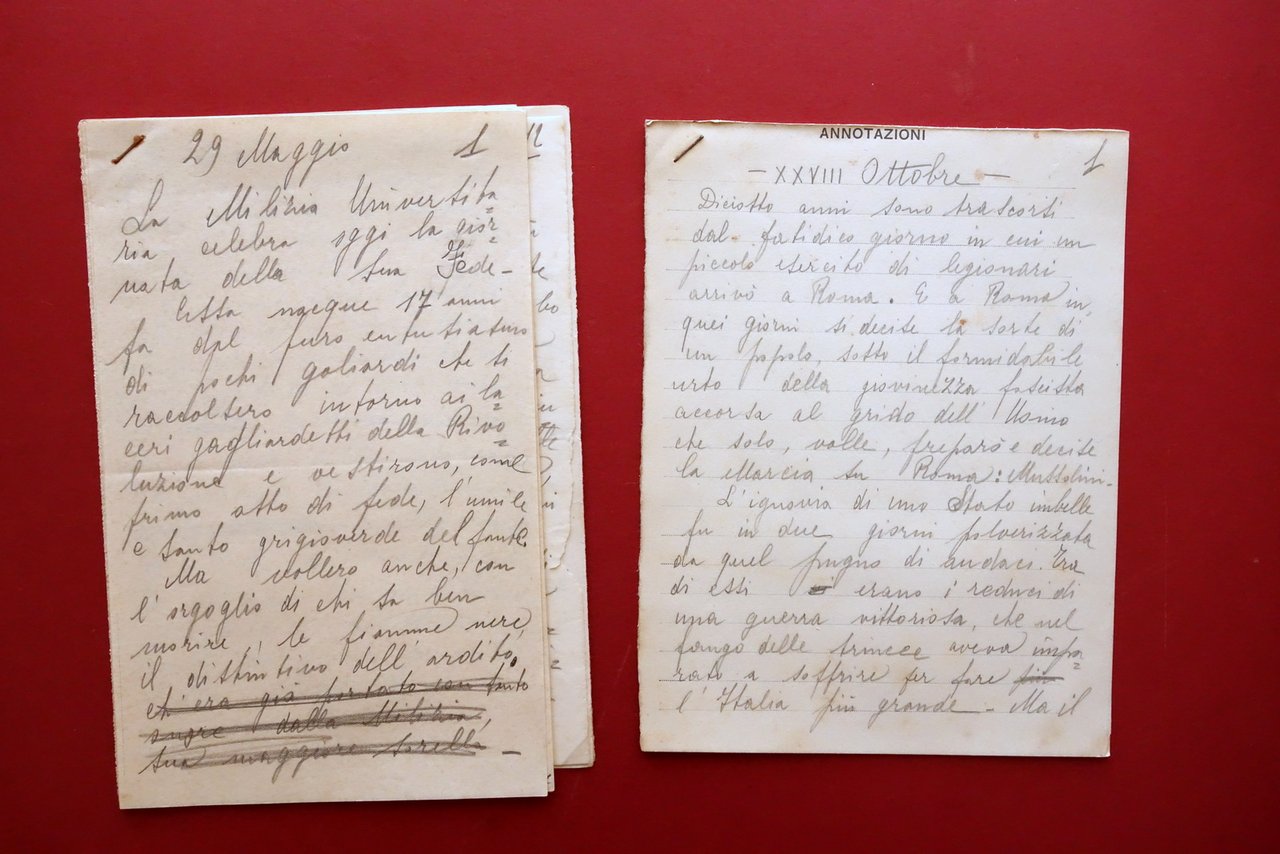 29 Maggio 1
La Milizia Universita=
ria celebra oggi la gior=
nata della sua Fede-
Essa nacque 17 anni
fa dal puro entusiasmo
di pochi goliardi che si
raccolsero intorno ai la=
ceri gagliardetti della Rivo=
luzione e vestirono, come
primo atto di fede, l'umile
e santo grigioverde del fante.
Ma vollero anche, con
l'orgoglio di chi sa ben
morire, le fiamme nere,
il distintivo dell'ardito.
ch'era già portato con tanto
onore dalla Milizia,
sua maggiore sorella -
12
ANNOTAZIONI
1
- XXVIII Ottobre -
Diciotto anni sono trascorsi
dal fatidico giorno in cui un
piccolo esercito di legionari
arrivò a Roma. E a Roma in
quei giorni si decise la sorte di
un popolo, sotto il formidabile
urto della giovinezza fascista
accorsa al grido dell'Uomo
che solo, volle, preparò e decise
la Marcia su Roma: Mussolini-
L'ignavia di uno Stato imbelle
fu in due giorni polverizzata
da quel pugno di audaci. Tra
di essi erano i reduci di
una guerra vittoriosa, che nel
fango delle trincee aveva impa=
rato a soffrire per fare più
l'Italia più grande - Ma il